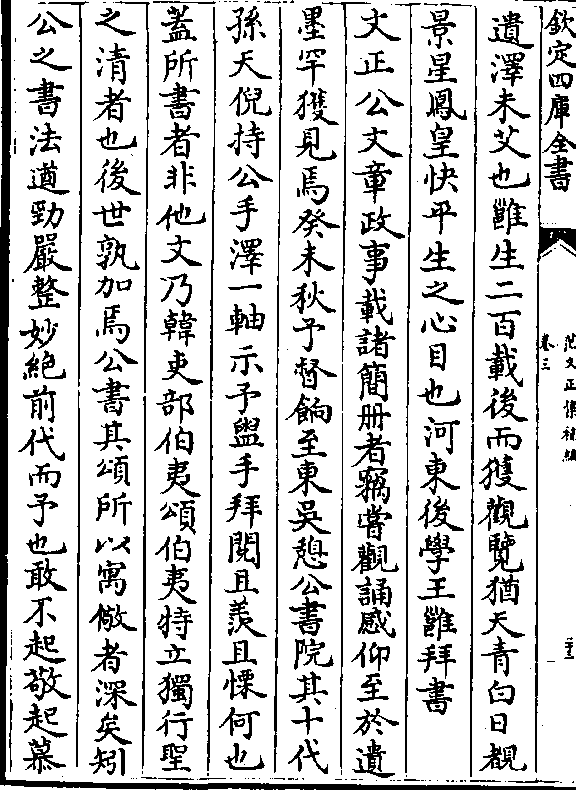 欽定四庫全書
范文正集補編
卷三
遺澤未艾也雖生二百載後而獲觀覽猶天青白日覩
景星鳳皇快平生之心目也河東後學王雝拜書
文正公文章政事載諸簡册者竊嘗觀誦感仰至於遺
墨罕獲見焉癸未秋予督餉至東吳憩公書院其十代
孫天倪持公手澤一軸示予盥手拜閱且羨且慄何也
蓋所書者非他文乃韓吏部伯夷頌伯夷特立獨行聖
之清者也後世孰加焉公書其頌所以寓儆者深矣矧
公之書法遒勁嚴整妙絶前代而予也敢不起敬起慕